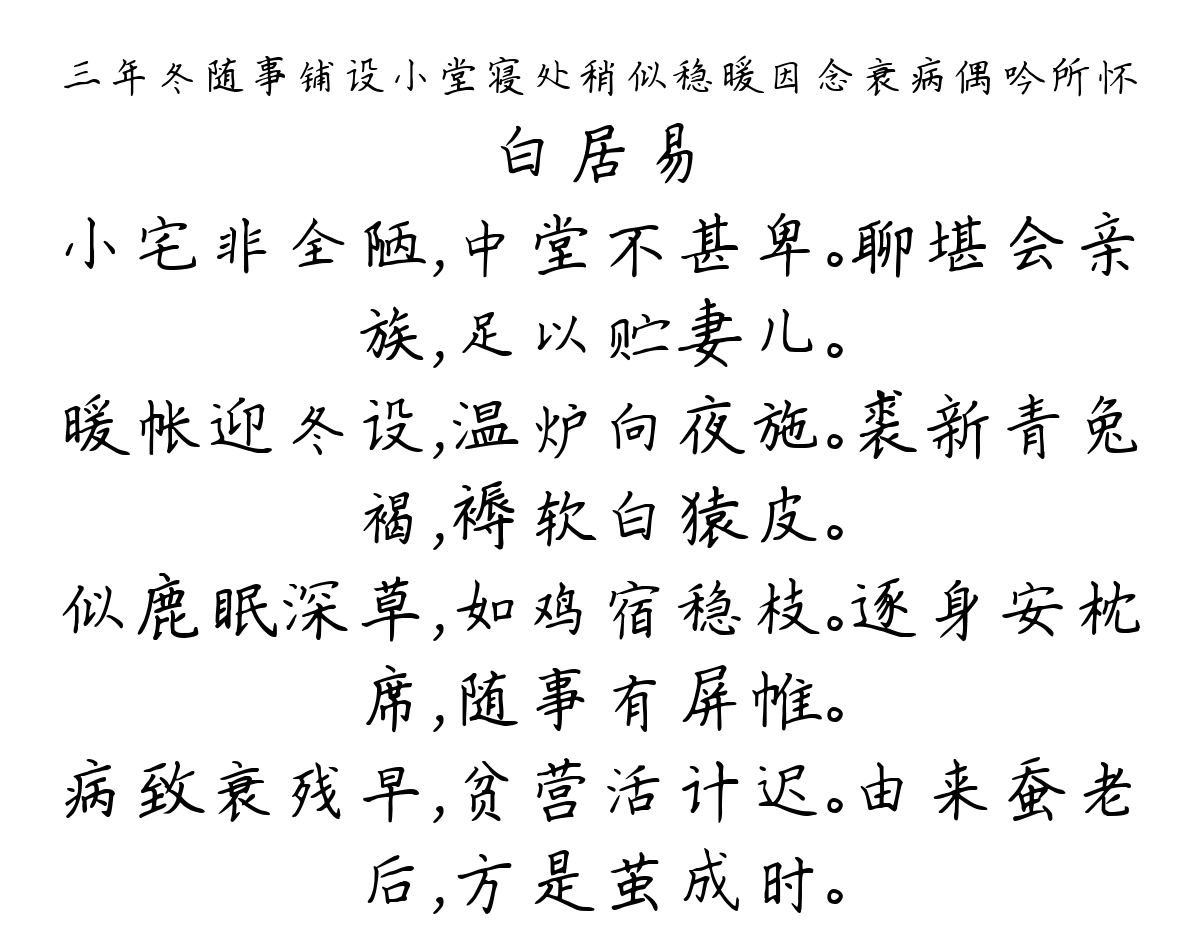 三年冬随事铺设小堂寝处稍似稳暖因念衰病偶吟所怀
白居易
小宅非全陋,中堂不甚卑。聊堪会亲
族,足以贮妻儿。
暖帐迎冬设,温炉向夜施。裘新青兔
褐,褥软白猿皮。
似鹿眠深草,如鸡宿稳枝。逐身安枕
席,随事有屏帷。
病致衰残早,贫营活计迟。由来蚕老
后,方是茧成时。